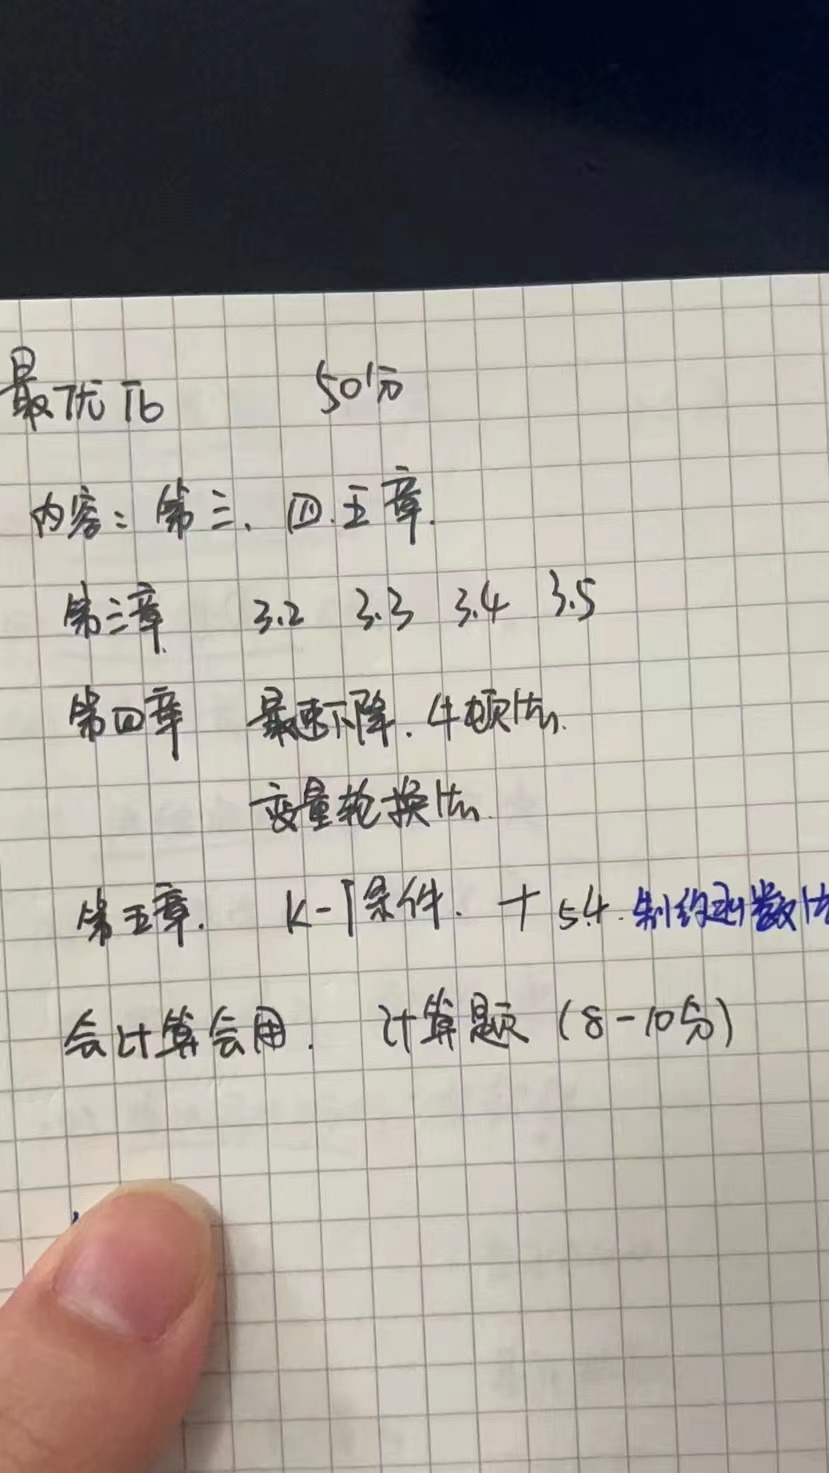 最优化 50分
内容：第三、四.五章.
第三章 3.2 3.3 3.4 3.5
第四章 最速下降.牛顿法.
变量轮换法.
第五章. K-T条件. + 5.4.制约函数法
会计算会用. 计算题(8-10分)